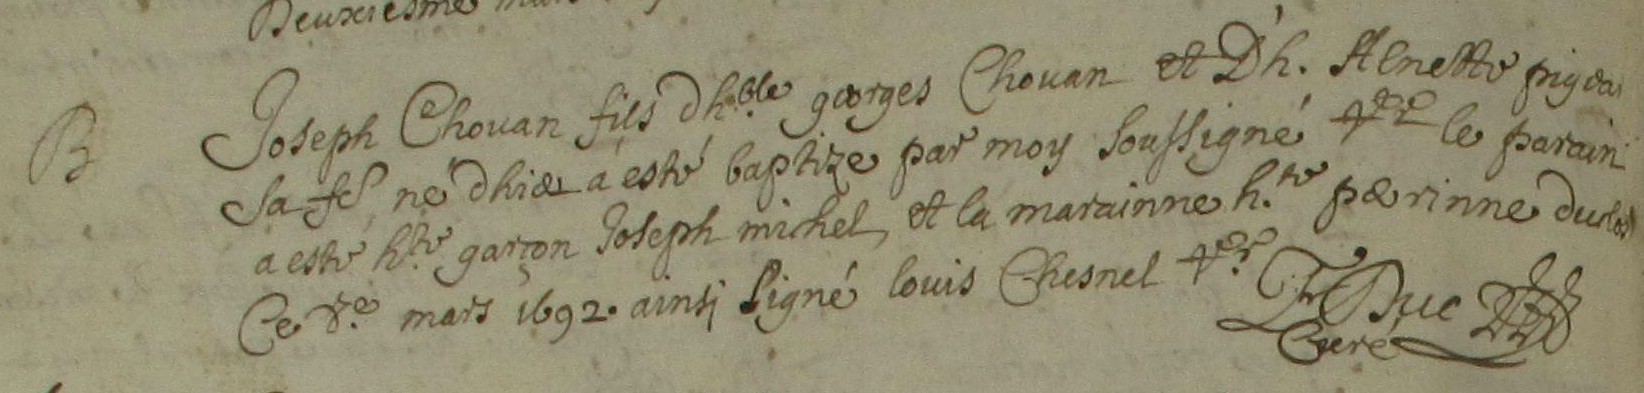 Deuxiesme mars
B
Joseph Chouan fils d'h.ble georges Chouan et D'h. pigeai
Sa fe né d'hier a esté baptize par moy soussigné ptre le parain
a esté h.te garçon Joseph michel, et la marainne h.te perinne
Ce mars 1692. ainsi signé louis Chesnel ptre
Duc
Curé